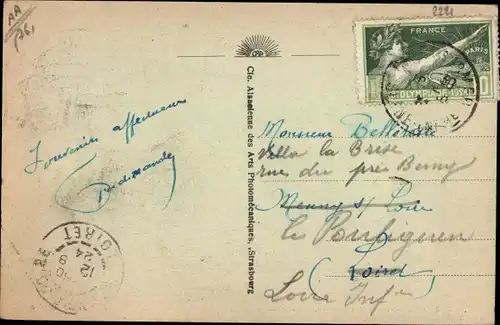 AA
2221
FRANCE
PARIS
8e OLYMPIADE 1924
Cie. Alsacienne des Arts Photomécaniques, Strasbourg
Souvenir affectueux
Monsieur
Villa la Brise
rue du pré
Meung s/ Loire
le Pouliguen
Loiret
Loire Infre
LOIRET
12
24